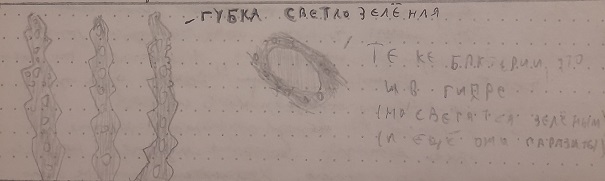 – ГУБКА СВЕТЛО ЗЕЛЁНАЯ
ТЕ ЖЕ БАКТЕРИИ, ЧТО
И В ГИДРЕ
(НО СВЕТЯТСЯ ЗЕЛЁНЫМ
(И ЕЩЁ ОНИ ПАРАЗИТЫ)